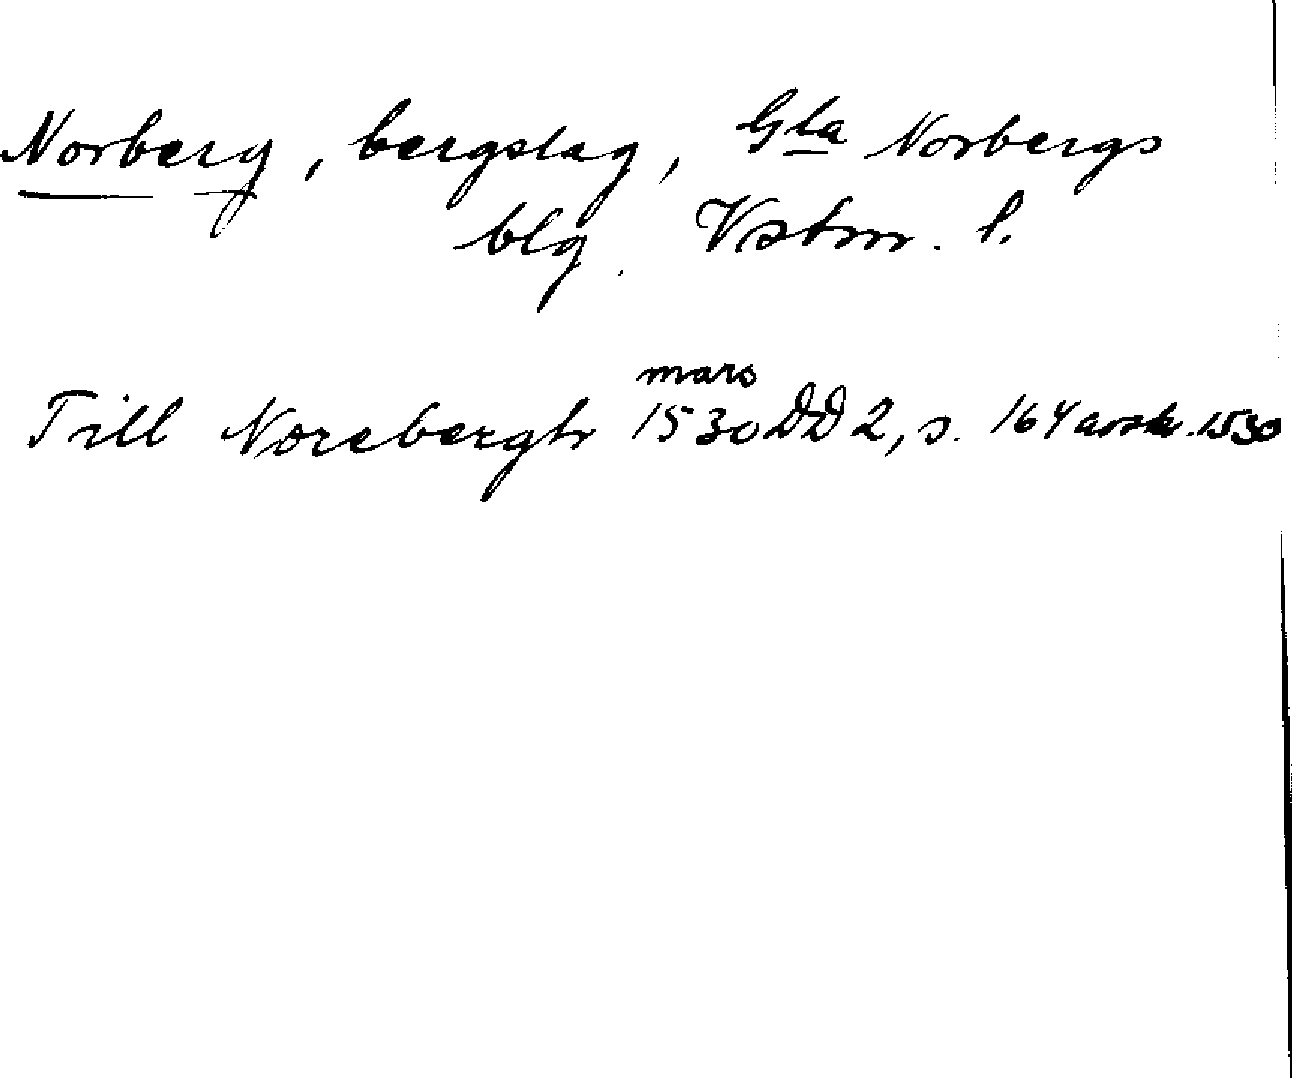 Norberg, bergslag, Gla Norbergs
blg. Vstm. l.
mars
Till Norebergh 1530 DD 2, s. 164 avskr. 1530